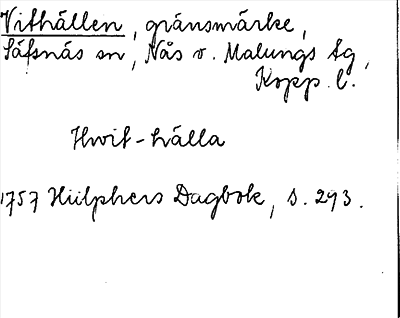 Vithällen, gränsmärke,
Säfsnäs sn, Nås o. Malungs tg,
Kopp. l.
Hwit-hälla
1757 Hülphers Dagbok, s. 293.